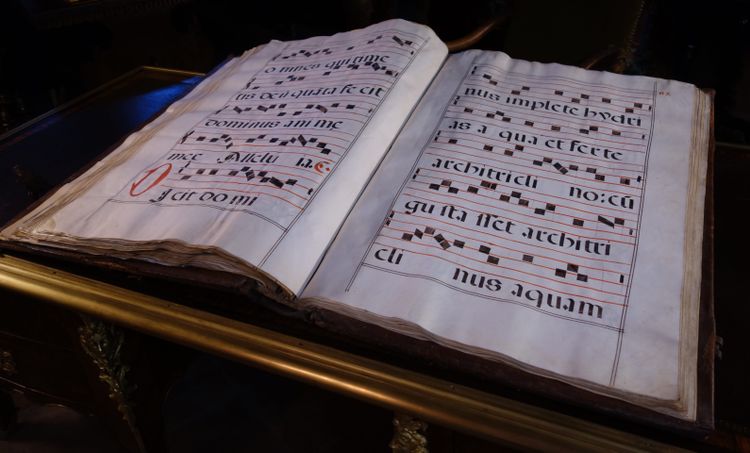 o mnes qui time
tis deū quata fe cit
dominus ani mę
meę Allelu ia. C.
D icit do mi
nus implete hydri
as a qua et ferte
architricli no: cū
gu sta sset architri
cli nus aquam